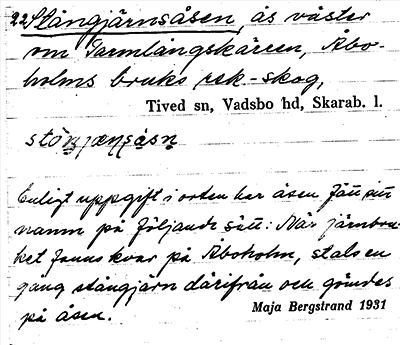 22 Stångjärnsåsen, ås väster
om Tarmlångskärren, Åbo-
holms bruks rek-skog,
Tived sn, Vadsbo hd, Skarab. l.
Enligt uppgift i orten har åsen fått sitt
namn på följande sätt: När järnbru-
ket fanns kvar på Åboholm, stals en
gång stångjärn därifrån och gömdes
på åsen.
Maja Bergstrand 1931